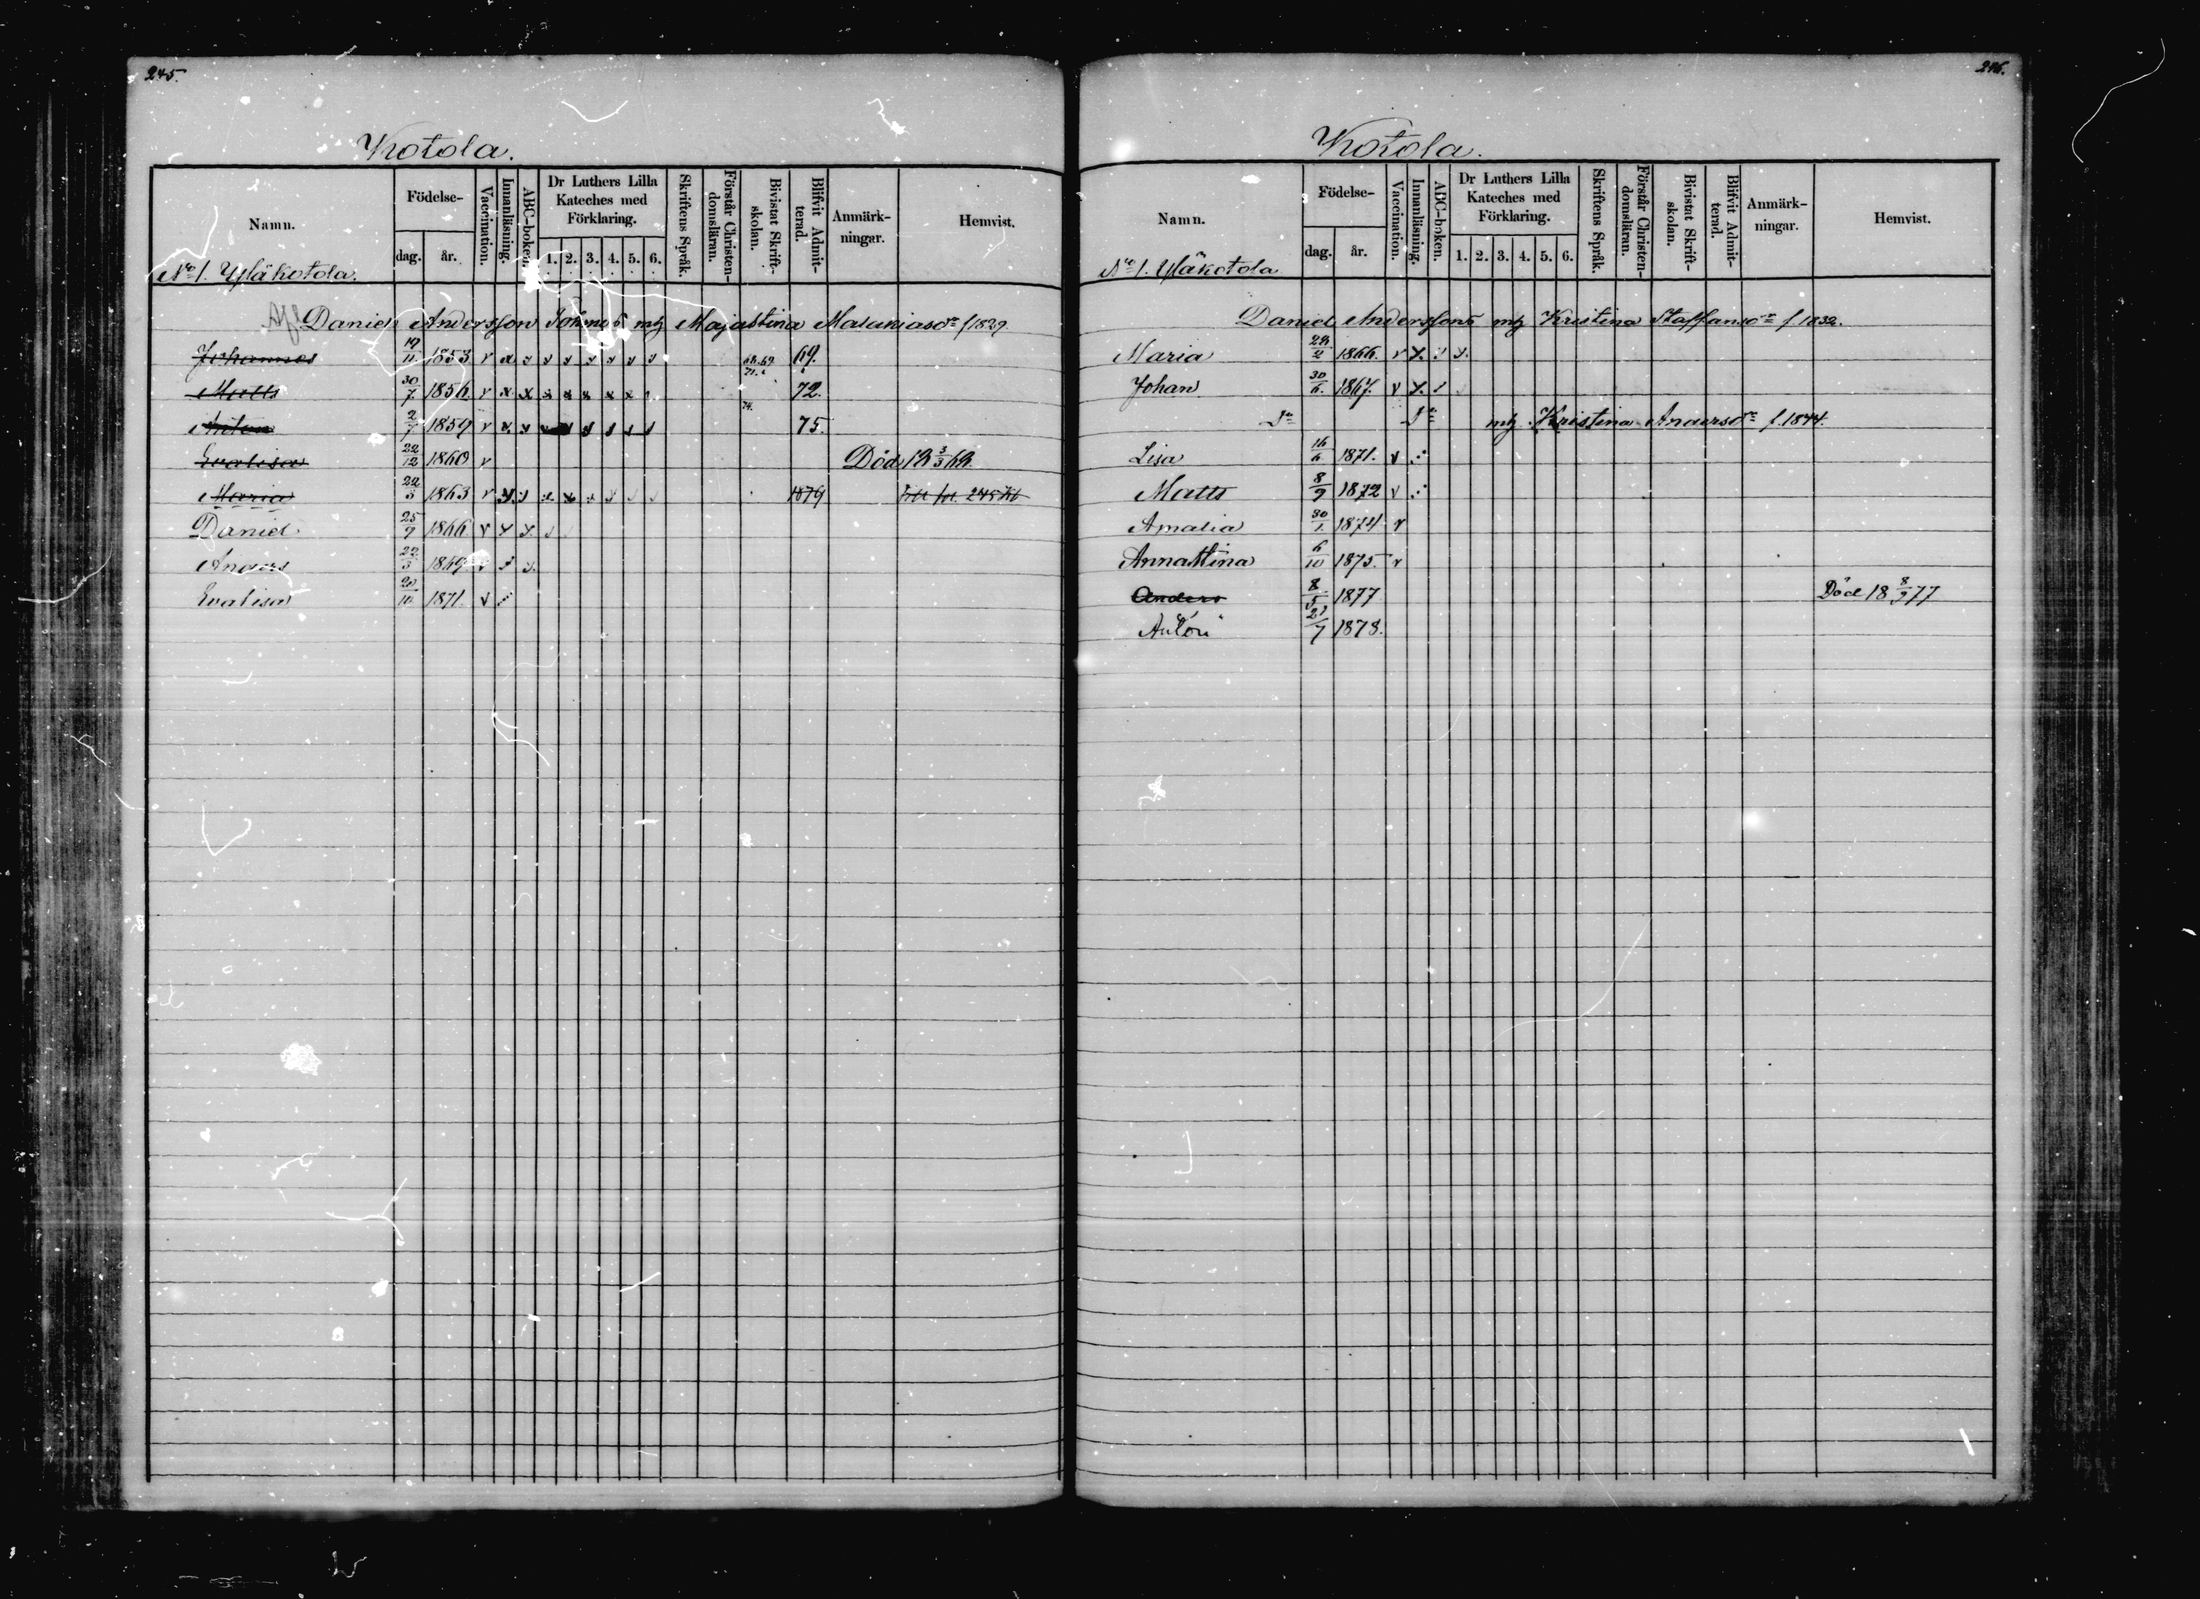 245.
Kotola.
Namn.
Födelse-
dag.
år.
Vaccination.
Innanläsning.
ABC-boken.
Dr Luthers Lilla Kateches med Förklaring.
1. 2. 3. 4. 5. 6.
Skriftens Språk.
Förstår Christendomsläran.
Bivistat Skriftskolan.
Blifvit Admitterad.
Anmärkningar.
Hemvist.
No 1. Yläkotola.
Daniel Andersson mh Majastina f 1829.
Johannes 19/11 1853 v x x x x x x x x 68.69. 71. 69.
Matts 30/7 1856 v x x x x x x x 72.
Anton 2/7 1859 v x x 74. 75.
Evalisa 22/12 1860 v Död 18 3/3 68.
Maria 22/3 1863 v x x 1879
Daniel 25/9 1866 v x x
Anders 22/3 1869 v
Evalisa 20/10 1871. v
246.
Kotola.
Namn.
Födelse-
dag.
år.
Vaccination.
Innanläsning.
ABC-boken.
Dr Luthers Lilla Kateches med Förklaring.
1. 2. 3. 4. 5. 6.
Skriftens Språk.
Förstår Christendomsläran.
Bivistat Skriftskolan.
Blifvit Admitterad.
Anmärkningar.
Hemvist.
No 1. Yläkotola
Daniel Anderssons mh Kristina Staffansdr f. 1832.
Maria 1866. v x.
Johan 30/6. 1867. v x.
Do Do mh Kristina Andersdr f. 1844.
Lisa 16/6 1871. v
Matts 8/9 1872 v
Amalia 30/1. 1874 v
Annastina 6/10 1875. v
Anders 8/5 1877 Död 18 8/9 77
Anton 21/7 1878.